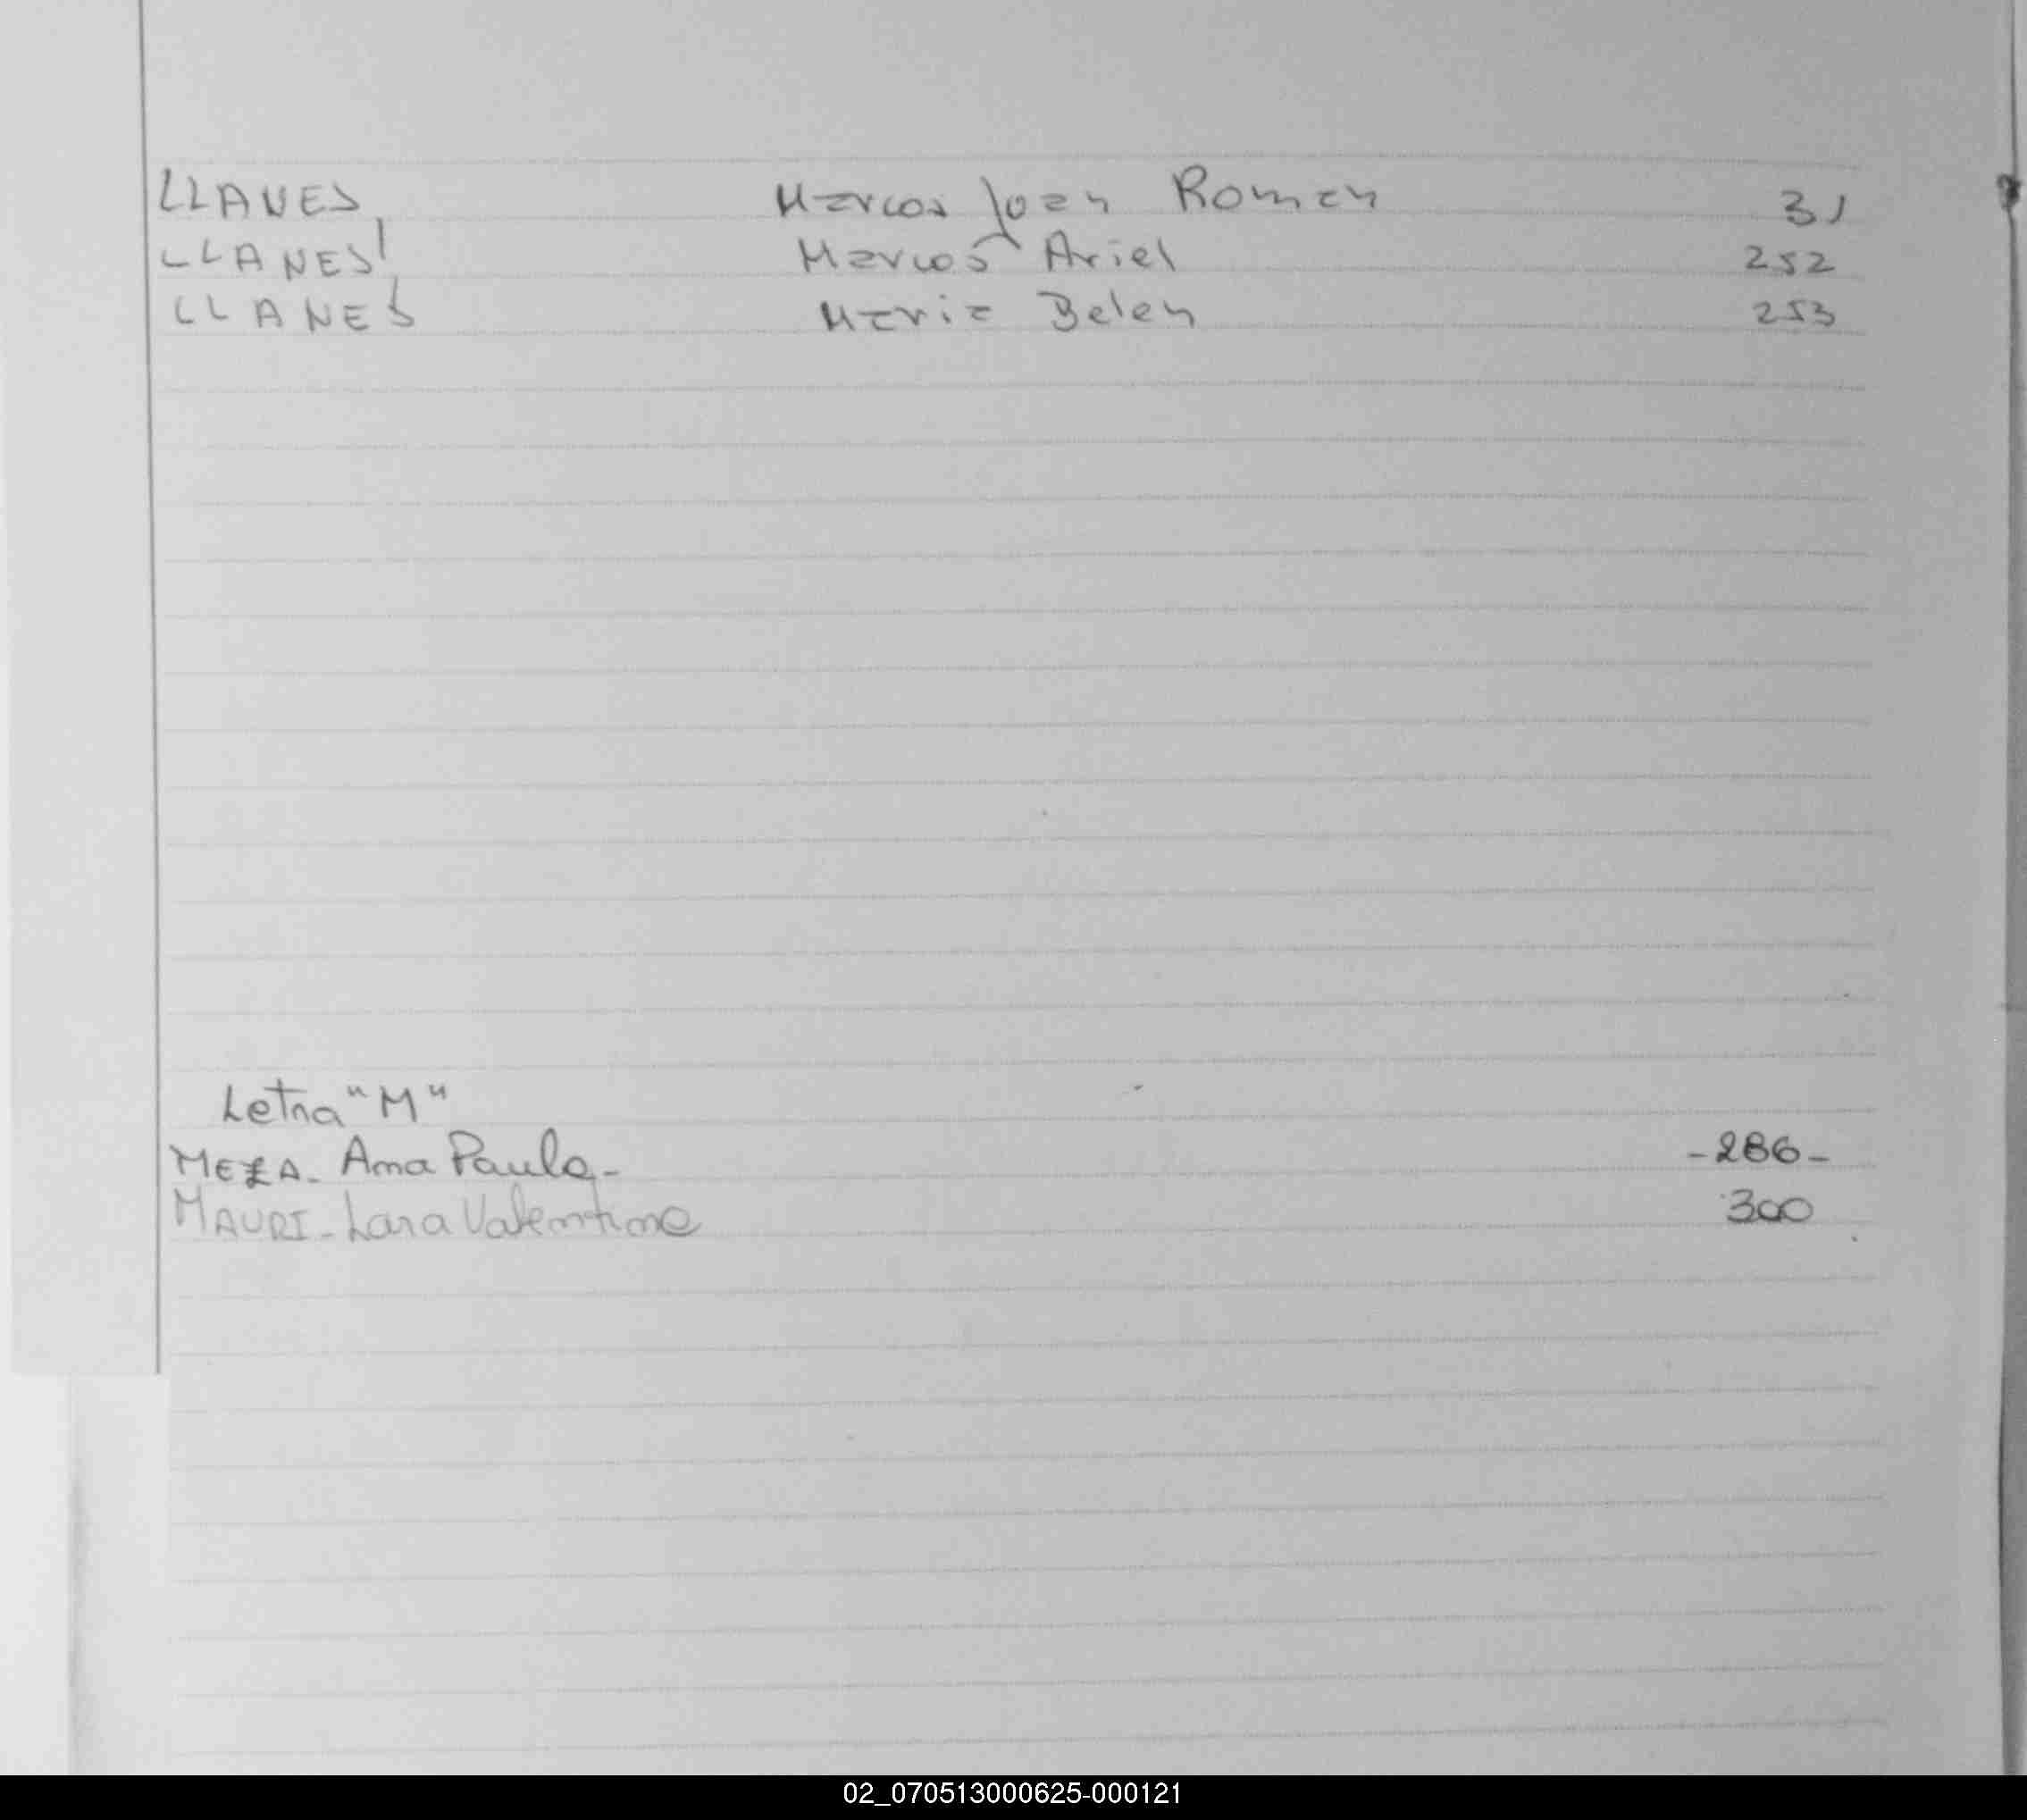 LLANES, Marcos Joan Roman 31
LLANES, Marcos Ariel 252
LLANES, Maria Belen 253
Letra "M"
MEZA - Ana Paula - -286-
MAURI - Lara Valentina 300
02_070513000625-000121